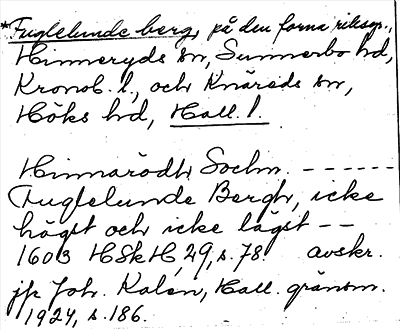 *Fuglelunde berg, på den forna riksgr.,
Hinneryds sn, Sunnerbo hd,
Kronob. l., och Knäreds sn,
Höks hd, Hall. l.
Hinnarödh Sochn. ------
Fuglelunde Bergh, icke
högst och icke lägst --
1603 HSkH, 29, s. 78 avskr.
jfr Joh. Kalén, Hall. gränsm.
1924, s. 186.